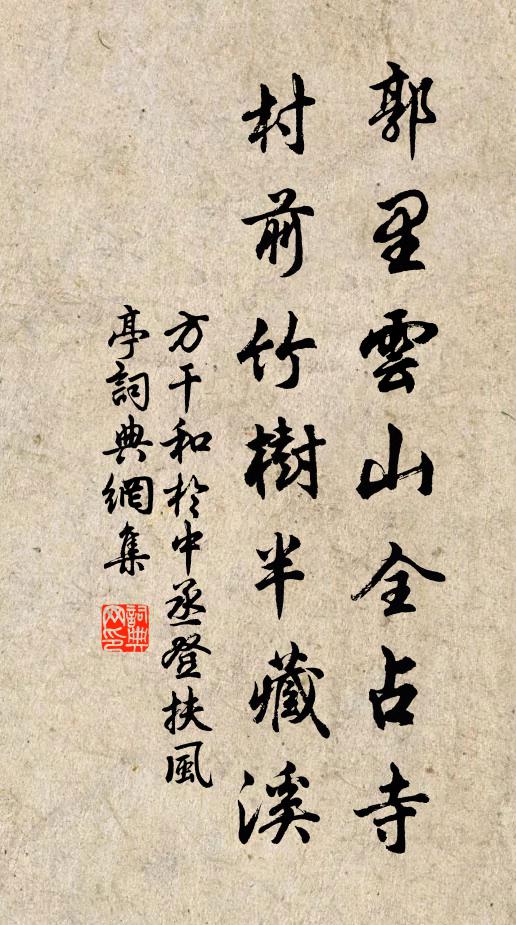 郭里雲山全占寺
村前竹樹半藏溪
方干和於中丞登扶風
亭詞典網集
詞典網印